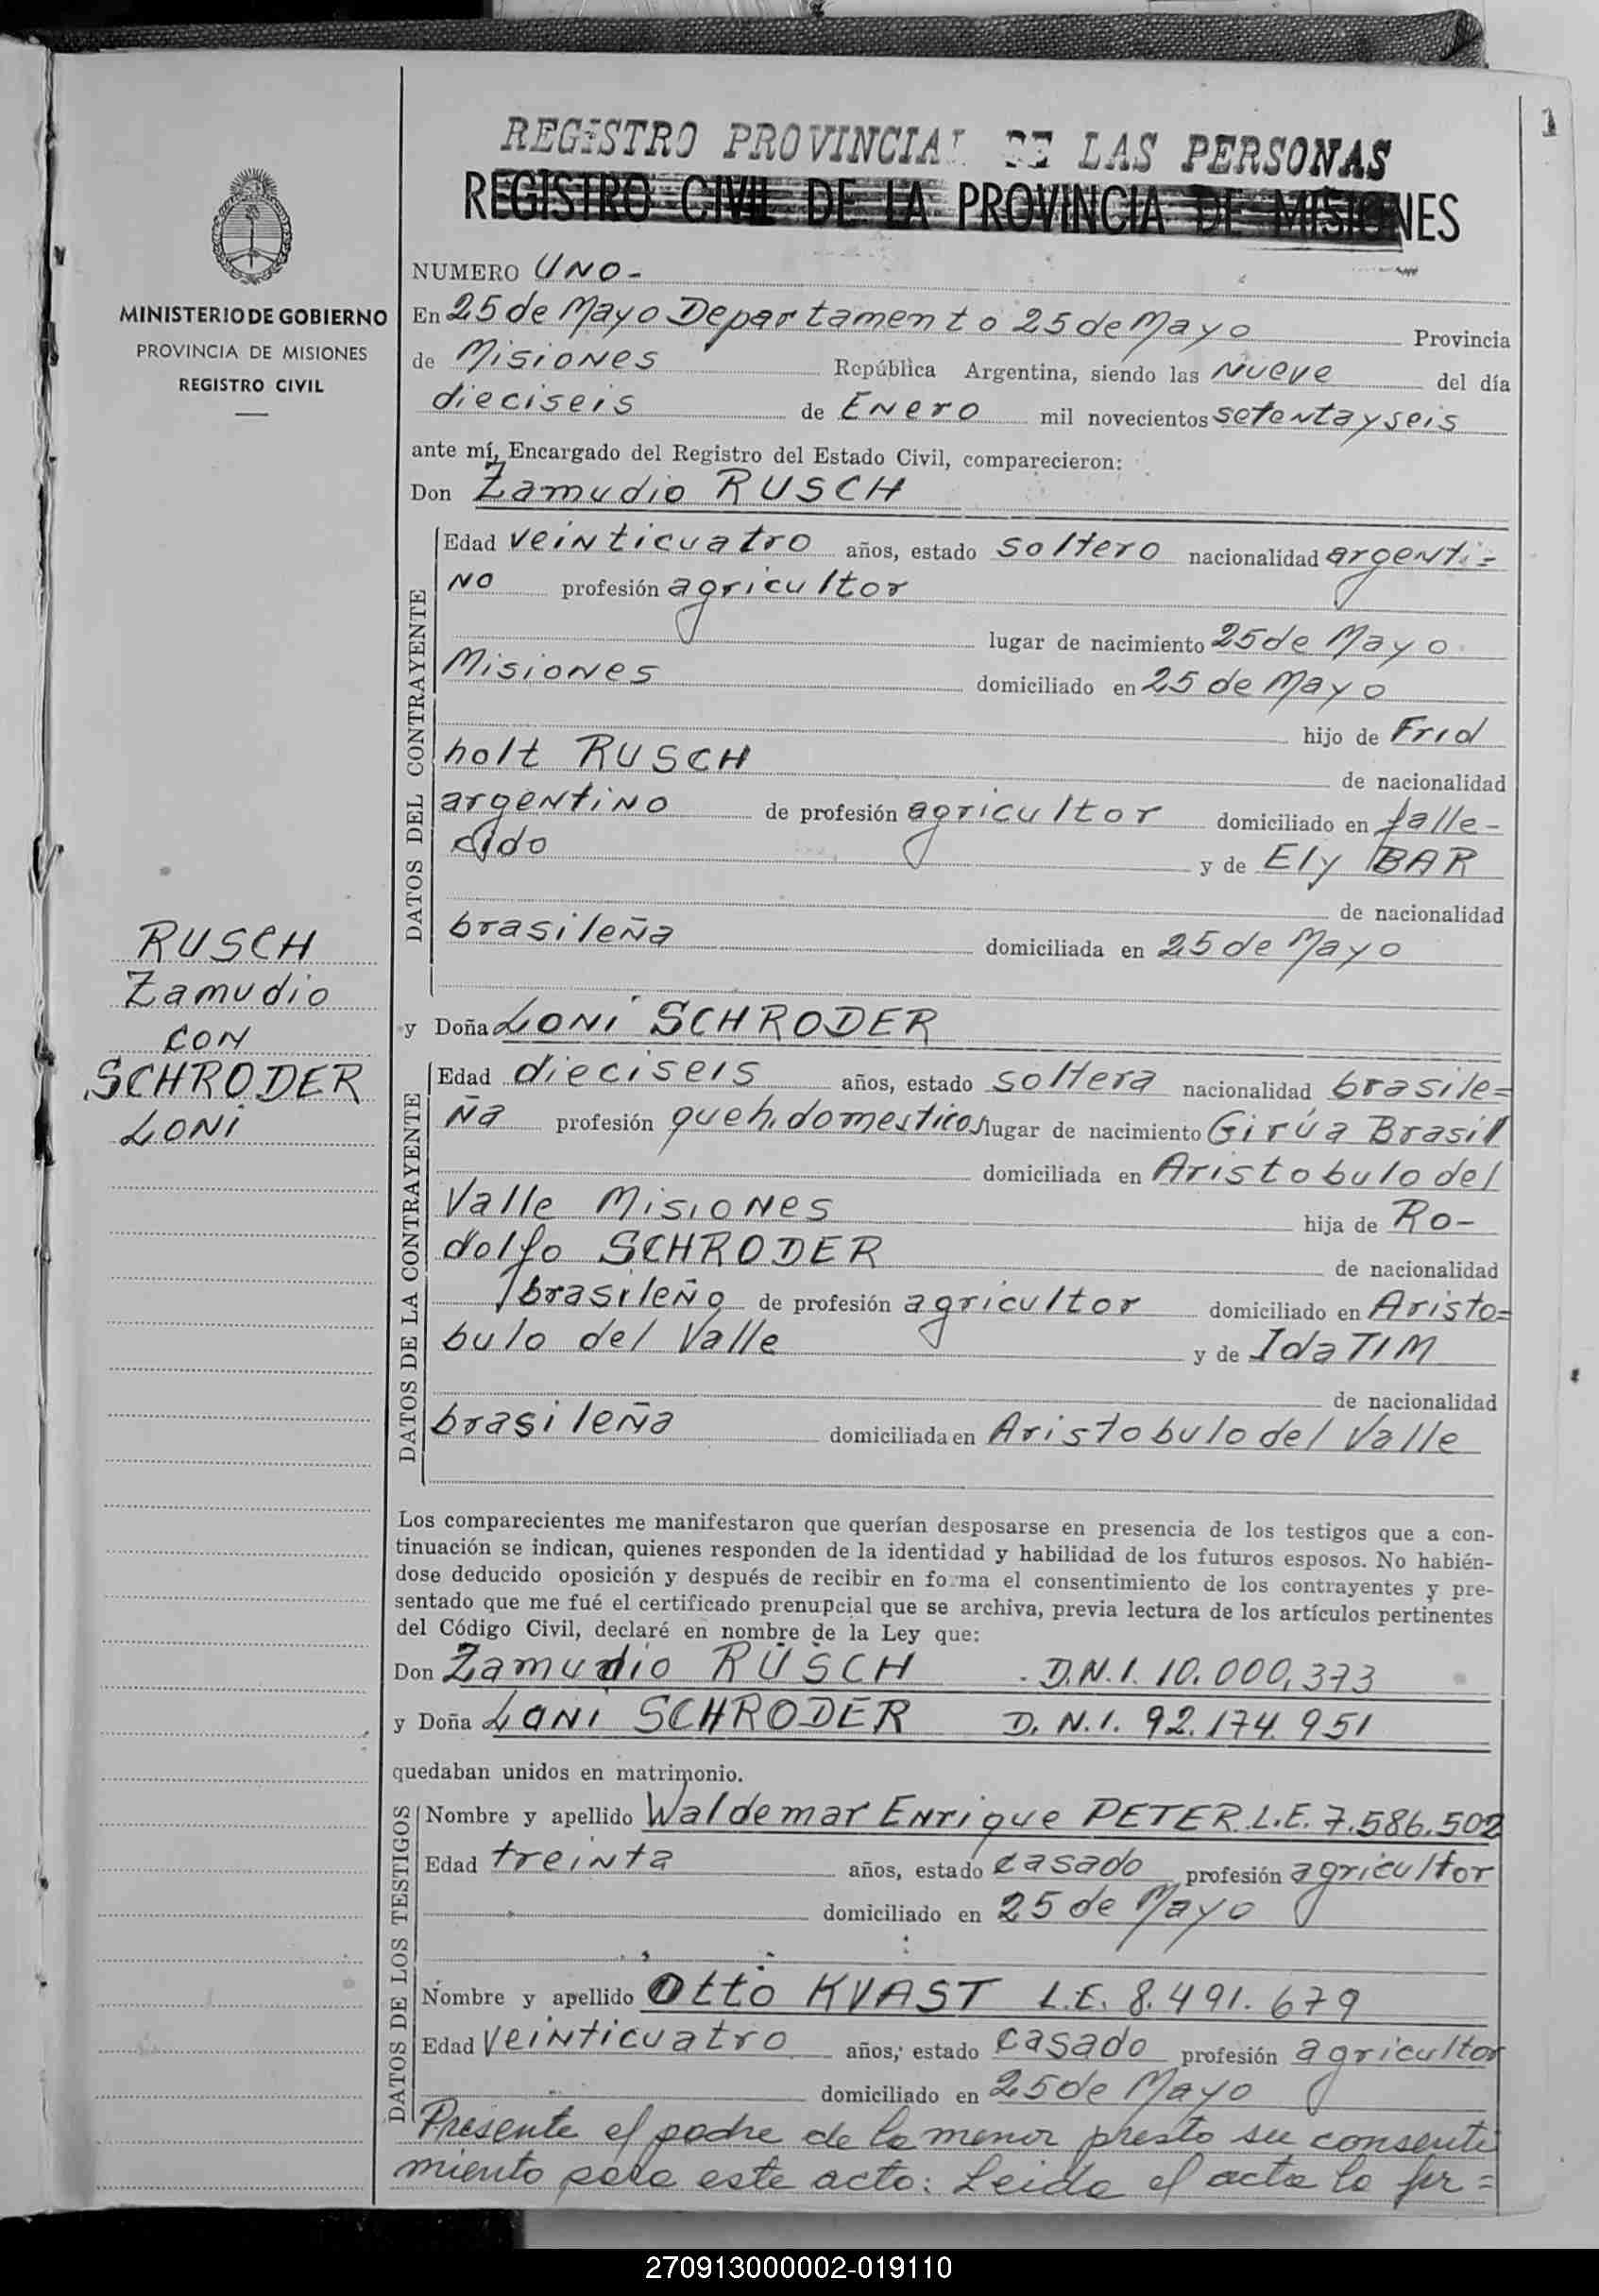 1
REGISTRO PROVINCIAL DE LAS PERSONAS
REGISTRO CIVIL DE LA PROVINCIA DE MISIONES
MINISTERIO DE GOBIERNO
PROVINCIA DE MISIONES
REGISTRO CIVIL
NUMERO UNO-
En 25 de Mayo Departamento 25 de Mayo Provincia
de Misiones República Argentina, siendo las Nueve del día
dieciseis de Enero mil novecientos setentayseis
ante mí, Encargado del Registro del Estado Civil, comparecieron:
Don Zamudio RUSCH
DATOS DEL CONTRAYENTE
Edad veinticuatro años, estado soltero nacionalidad argenti=
no profesión agricultor
lugar de nacimiento 25 de Mayo
Misiones domiciliado en 25 de Mayo
hijo de Frid
holt RUSCH de nacionalidad
argentino de profesión agricultor domiciliado en falle-
cido y de Ely BAR
de nacionalidad
brasileña domiciliada en 25 de Mayo
RUSCH
Zamudio
CON
SCHRODER
LONI
y Doña LONI SCHRODER
DATOS DE LA CONTRAYENTE
Edad dieciseis años, estado soltera nacionalidad brasile=
ña profesión queh. domesticos lugar de nacimiento Girúa Brasil
domiciliada en Aristobulo del
Valle Misiones hija de Ro-
dolfo SCHRODER de nacionalidad
brasileño de profesión agricultor domiciliado en Aristo=
bulo del Valle y de Ida TIM
de nacionalidad
brasileña domiciliada en Aristobulo del Valle
Los comparecientes me manifestaron que querían desposarse en presencia de los testigos que a con-
tinuación se indican, quienes responden de la identidad y habilidad de los futuros esposos. No habién-
dose deducido oposición y después de recibir en forma el consentimiento de los contrayentes y pre-
sentado que me fué el certificado prenupcial que se archiva, previa lectura de los artículos pertinentes
del Código Civil, declaré en nombre de la Ley que:
Don Zamudio RUSCH D.N.I. 10.000,373
y Doña LONI SCHRODER D.N.I. 92.174.951
quedaban unidos en matrimonio.
DATOS DE LOS TESTIGOS
Nombre y apellido Waldemar Enrique PETER L.E. 7.586.502
Edad treinta años, estado casado profesión agricultor
domiciliado en 25 de Mayo
Nombre y apellido Otto KVAST L.E. 8.491.679
Edad veinticuatro años, estado casado profesión agricultor
domiciliado en 25 de Mayo
Presente el padre de la menor presto su consenti
miento para este acto: Leida el acta la fir=
270913000002-019110